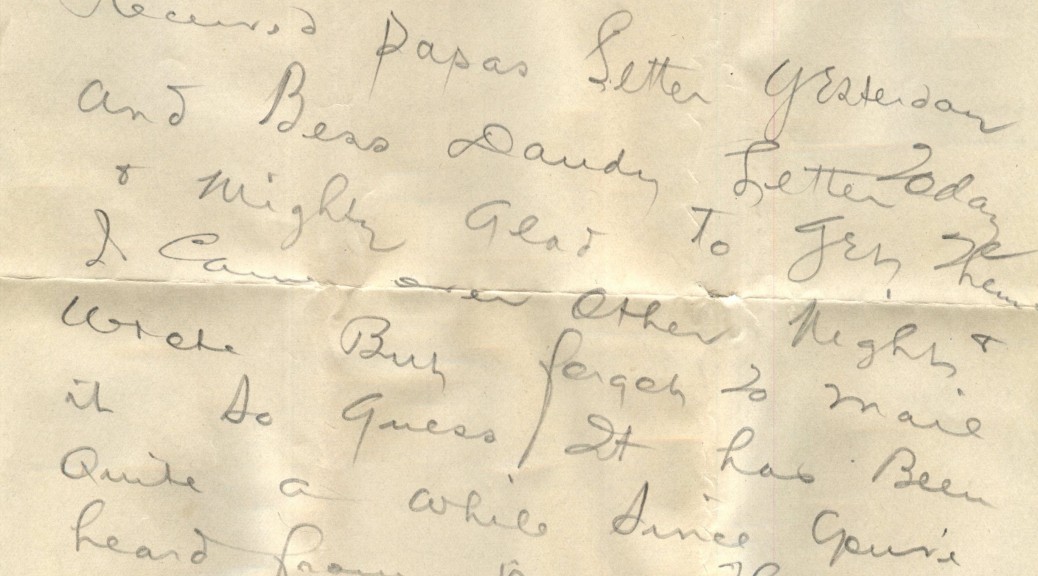 Received Papas Letter Yesterday
and Bess Dandy Letter Today
& Mighty Glad To Get Them
I Came over Other Night &
wrote But forgot to mail
it so Guess It has Been
Quite a while since You've
heard from